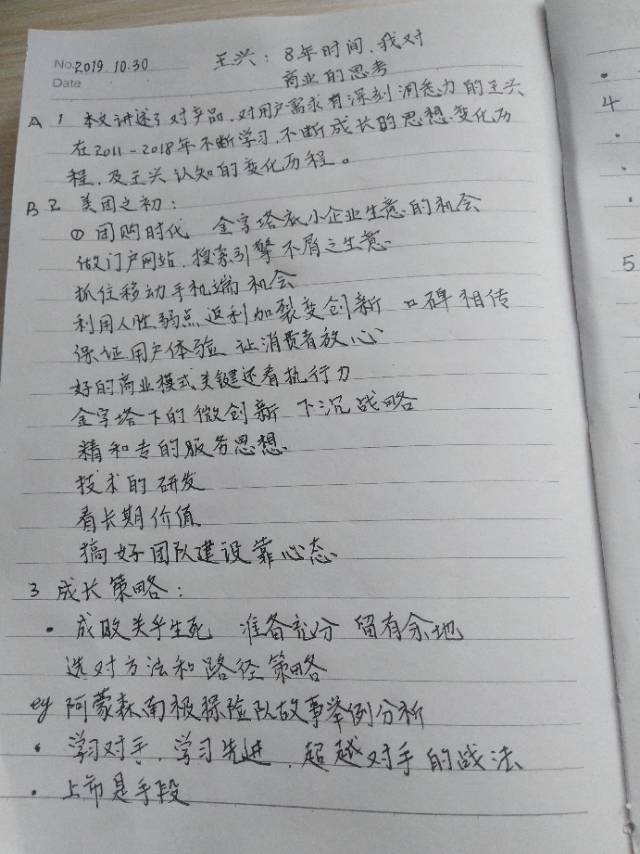 No. 2019.10.30
Date
王兴：8年时间，我对
商业的思考
A 1 本文讲述了对产品，对用户需求有深刻洞悉力的王兴
在2011-2018年不断学习，不断成长的思想变化历
程，及王兴认知的变化历程。
B 2 美团之初：
① 团购时代 金字塔底小企业生意的机会
做门户网站，搜索引擎不屑之生意
抓住移动手机端机会
利用人性弱点返利加裂变创新 口碑相传
保证用户体验 让消费者放心
好的商业模式关键还看执行力
金字塔下的微创新 下沉战略
精和专的服务思想
技术的研发
看长期价值
搞好团队建设靠心态
3 成长策略：
• 成败关乎生死 准备充分 留有余地
选对方法和路径策略
eg 阿蒙森南极探险队故事举例分析
• 学习对手，学习先进，超越对手的战法
• 上市是手段
4
5